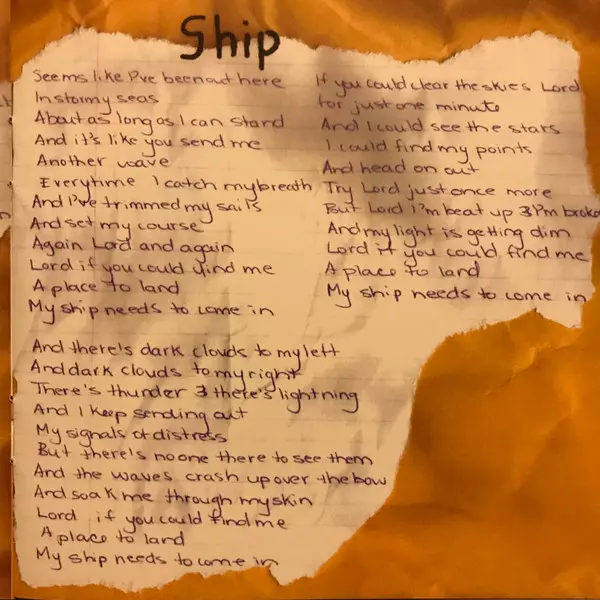 Ship
Seems like I've been out here
In stormy seas
About as long as I can stand
And it's like you send me
Another wave
Everytime I catch my breath
And I've trimmed my sails
And set my course
Again Lord and again
Lord if you could find me
A place to land
My ship needs to come in
And there's dark clouds to my left
And dark clouds to my right
There's thunder & there's lightning
And I keep sending out
My signals of distress
But there's no one there to see them
And the waves crash up over the bow
And soak me through my skin
Lord if you could find me
A place to land
My ship needs to come in
If you could clear the skies Lord
for just one minute
And I could see the stars
I could find my points
And head on out
Try Lord just once more
But Lord I'm beat up & I'm broke
And my light is getting dim
Lord if you could find me
A place to land
My ship needs to come in